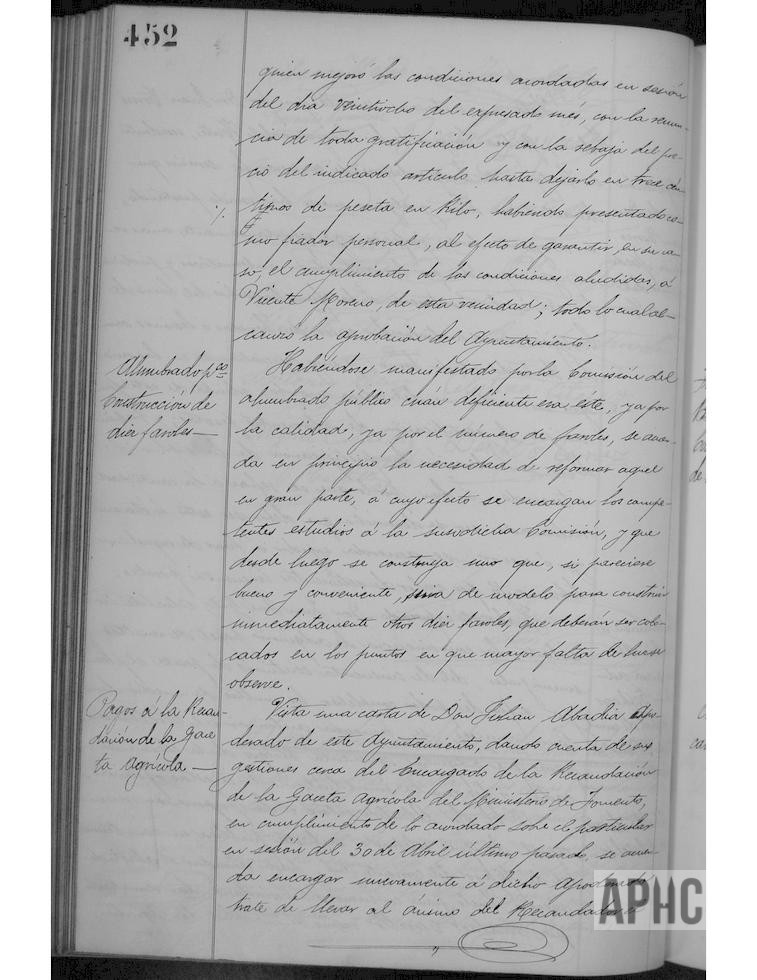 452
quien mejoró las condiciones acordadas en sesión
del día veintiocho del expresado més, con la renun-
cia de toda gratificación y con la rebaja del pre-
cio del indicado artículo hasta dejarlo en trece cén-
timos de peseta en Kilo, habiendo presentado co-
mo fiador personal, al efecto de garantir, en su ca-
so, el cumplimiento de las condiciones aludidas, á
Vicente Moreno, de esta vecindad; todo lo cual al-
canzó la aprobación del Ayuntamiento.
Alumbrado pco
Construcción de
diez faroles—
Habiéndose manifestado por la Comisión del
alumbrado público cuán deficiente era este, ya por
la calidad, ya por el número de faroles, se acuer-
da en principio la necesidad de reformar aquel
en gran parte, á cuyo efecto se encargan los compe-
tentes estudios á la susodicha Comisión, y que
desde luego se construya uno que, si pareciese
bueno y conveniente, sirva de modelo para construir
inmediatamente otros diez faroles, que deberán ser colo-
cados en los puntos en que mayor falta de luz se
observe.
Pagos á la Recau-
dación de la Gace-
ta Agrícola—
Vista una carta de Don Julian Abadia Apo-
derado de este Ayuntamiento, dando cuenta de sus
gestiones cerca del Encargado de la Recaudación
de la Gaceta Agrícola del Ministerio de Fomento,
en cumplimiento de lo acordado sobre el particular
en sesión del 30 de Abril último pasado, se acuer-
da encargar nuevamente á dicho Apoderado
trate de llevar al ánimo del Recaudador
APHC